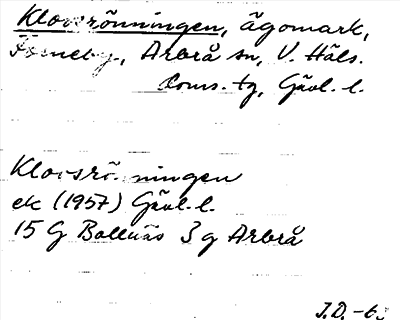 Klovsrönningen, ägomark,
Arbrå sn, V. Häls.
doms. tg, Gävl. l.
Klovsrönningen
ek (1957) Gävl. l.
15 G Bollnäs 3 g Arbrå
J.D. -6